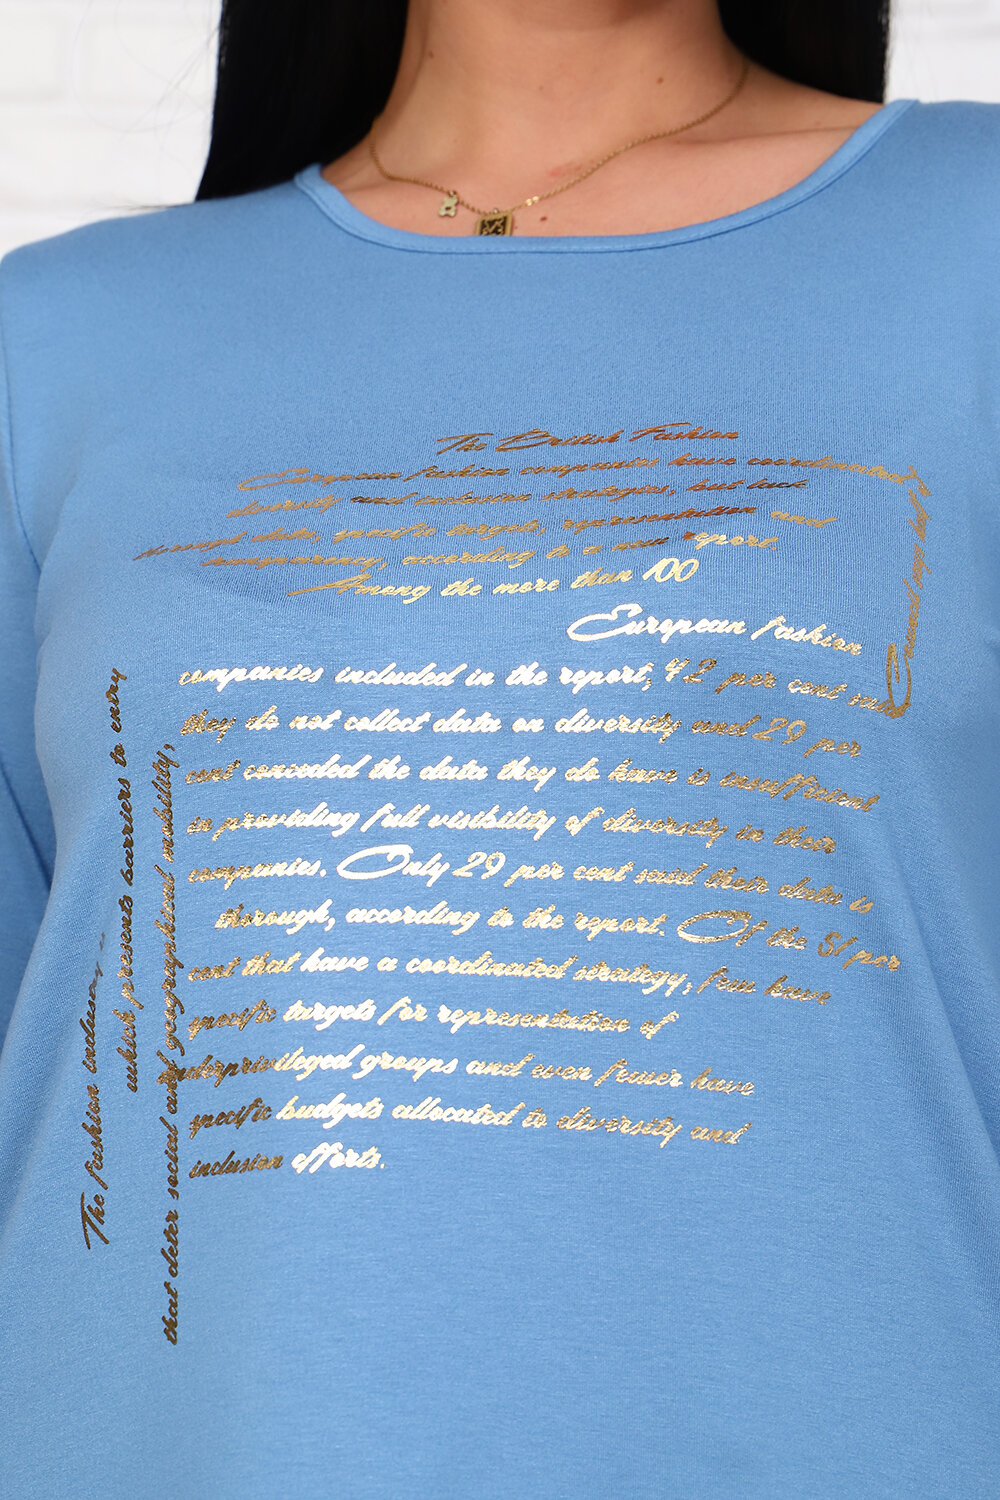 The British Fashion
European fashion companies have coordinated
diversity and inclusion strategies, but lack
thorough data, specific targets, representation and
transparency, according to a new report.
Among the more than 100
European fashion
companies included in the report, 42 per cent said
they do not collect data on diversity and 29 per
cent conceded the data they do have is insufficient
in providing full visibility of diversity in their
companies. Only 29 per cent said their data is
thorough, according to the report. Of the 51 per
cent that have a coordinated strategy, few have
specific targets for representation of
underprivileged groups and even fewer have
specific budgets allocated to diversity and
inclusion efforts.
Council
The fashion industry
which presents barriers to entry
that deter social and geographical mobility,